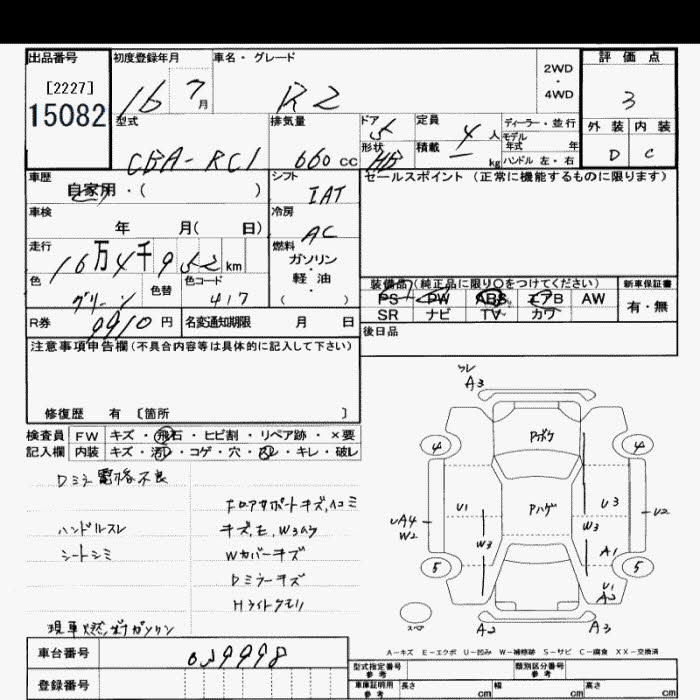 出品番号 初度登録年月 車名・グレード 2WD・4WD 評価点
[2227]
15082 16 7月 R2 3
型式 排気量 ドア 5 定員 4人 ディーラー・並行 外装 内装
形状 HB 積載 ー kg モデル年式 年 D C
CBA-RC1 660cc ハンドル 左・右
車歴 シフト セールスポイント(正常に機能するものに限ります)
自家用・( ) IAT
車検 冷房
年 月( 日) AC
走行 燃料
16万4千952km ガソリン・軽油
色 色替 色コード ( ) 装備品(純正品に限り○をつけてください) 新車保証書
グリーン 417 PS PW ABS エアB AW 有・無
R券 9910円 名変通知期限 月 日 SR ナビ TV カワ
注意事項申告欄(不具合内容等は具体的に記入して下さい) 後日品
修復歴 有 〔箇所 〕
検査員 FW キズ・飛石・ヒビ割・リペア跡・×要
記入欄 内装 キズ・汚レ・コゲ・穴・スレ・キレ・破レ
Dミラー電格不良
ハンドルスレ
シートシミ
キズ、E、Wスムラ
Wカバーキズ
Dミラーキズ
Hライトクモリ
A3
Pボケ
4 4
Pハゲ
U1 U3
UA4 W3 W3 U2
W2
A1
5 5
U1
A2
スペア A2 A3
A-キズ E-エクボ U-凹み W-補修跡 S-サビ C-腐食 XX-交換済
車台番号 039998
型式指定番号 参考 類別区分番号 参考
登録番号 車庫証明用 参考 長さ cm 幅 cm 高さ cm